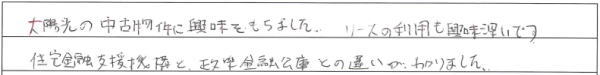 太陽光の中古物件に興味をもちました。リースの利用も興味深いです
住宅金融支援機構と、政策金融公庫との違いがわかりました。